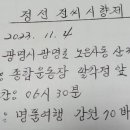 정선 전씨 시향제
2023. 11. 4
광명시 광명로 노온사동 산
: 종합운동장 앞
: 06시 30분
: 명품여행 강원 70바